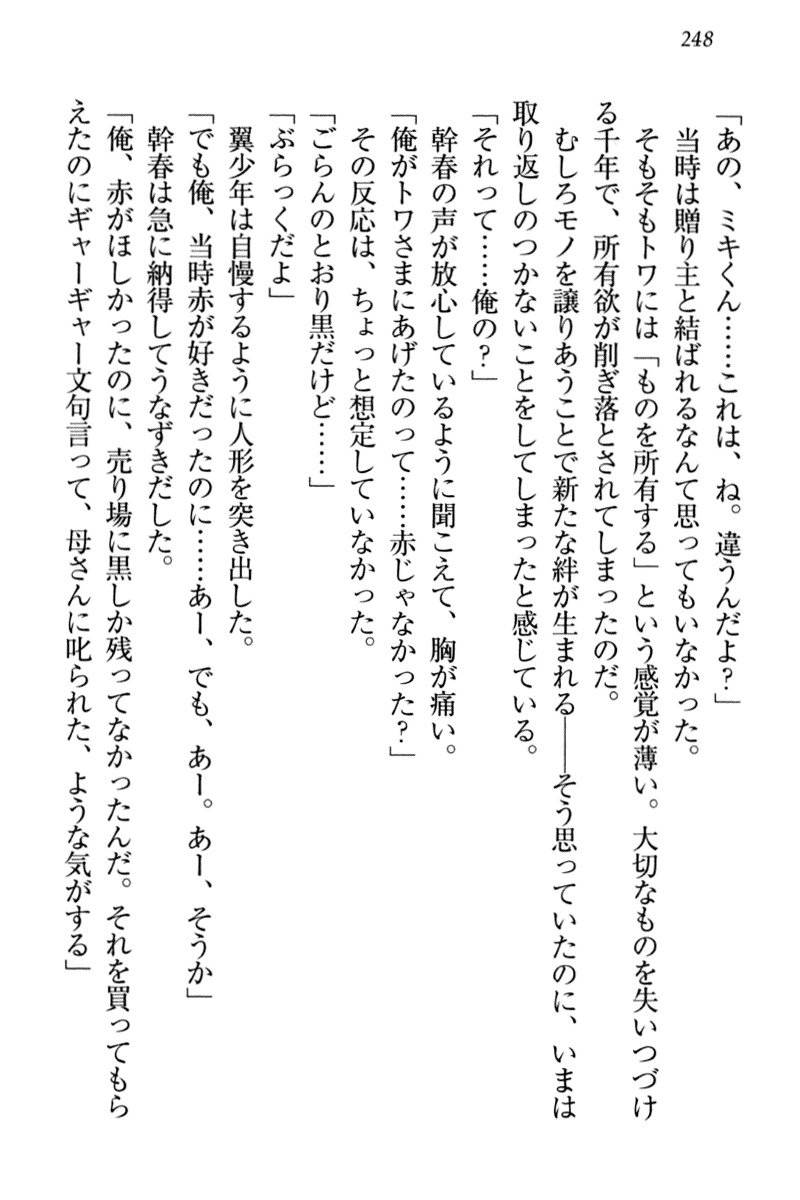 248
「あの、ミキくん……これは、ね。違うんだよ？」
　当時は贈り主と結ばれるなんて思ってもいなかった。
　そもそもトワには「ものを所有する」という感覚が薄い。大切なものを失いつづけ
る千年で、所有欲が削ぎ落とされてしまったのだ。
　むしろモノを譲りあうことで新たな絆が生まれる――そう思っていたのに、いまは
取り返しのつかないことをしてしまったと感じている。
「それって……俺の？」
　幹春の声が放心しているように聞こえて、胸が痛い。
「俺がトワさまにあげたのって……赤じゃなかった？」
　その反応は、ちょっと想定していなかった。
「ごらんのとおり黒だけど……」
「ぶらっくだよ」
　翼少年は自慢するように人形を突き出した。
「でも俺、当時赤が好きだったのに……あー、でも、あー。あー、そうか」
　幹春は急に納得してうなずきだした。
「俺、赤がほしかったのに、売り場に黒しか残ってなかったんだ。それを買ってもら
えたのにギャーギャー文句言って、母さんに叱られた、ような気がする」